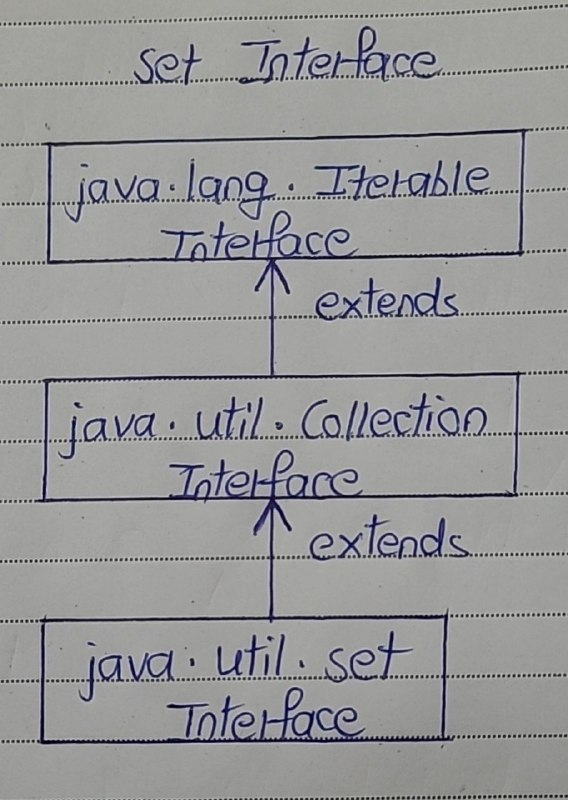 set Interface
java.lang.Iterable
Interface
extends
java.util.Collection
Interface
extends
java.util.set
Interface